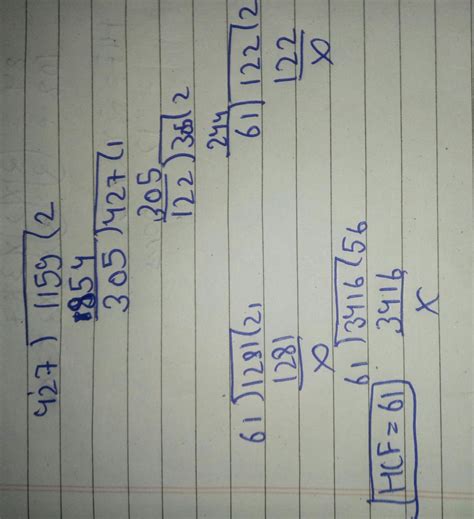 427 ) 1159 ( 2
854
305 ) 427 ( 1
305
122 ) 305 ( 2
244
61 ) 122 ( 2
122
X
61 ) 1281 ( 21
1281
X
61 ) 3416 ( 56
3416
X
HCF = 61